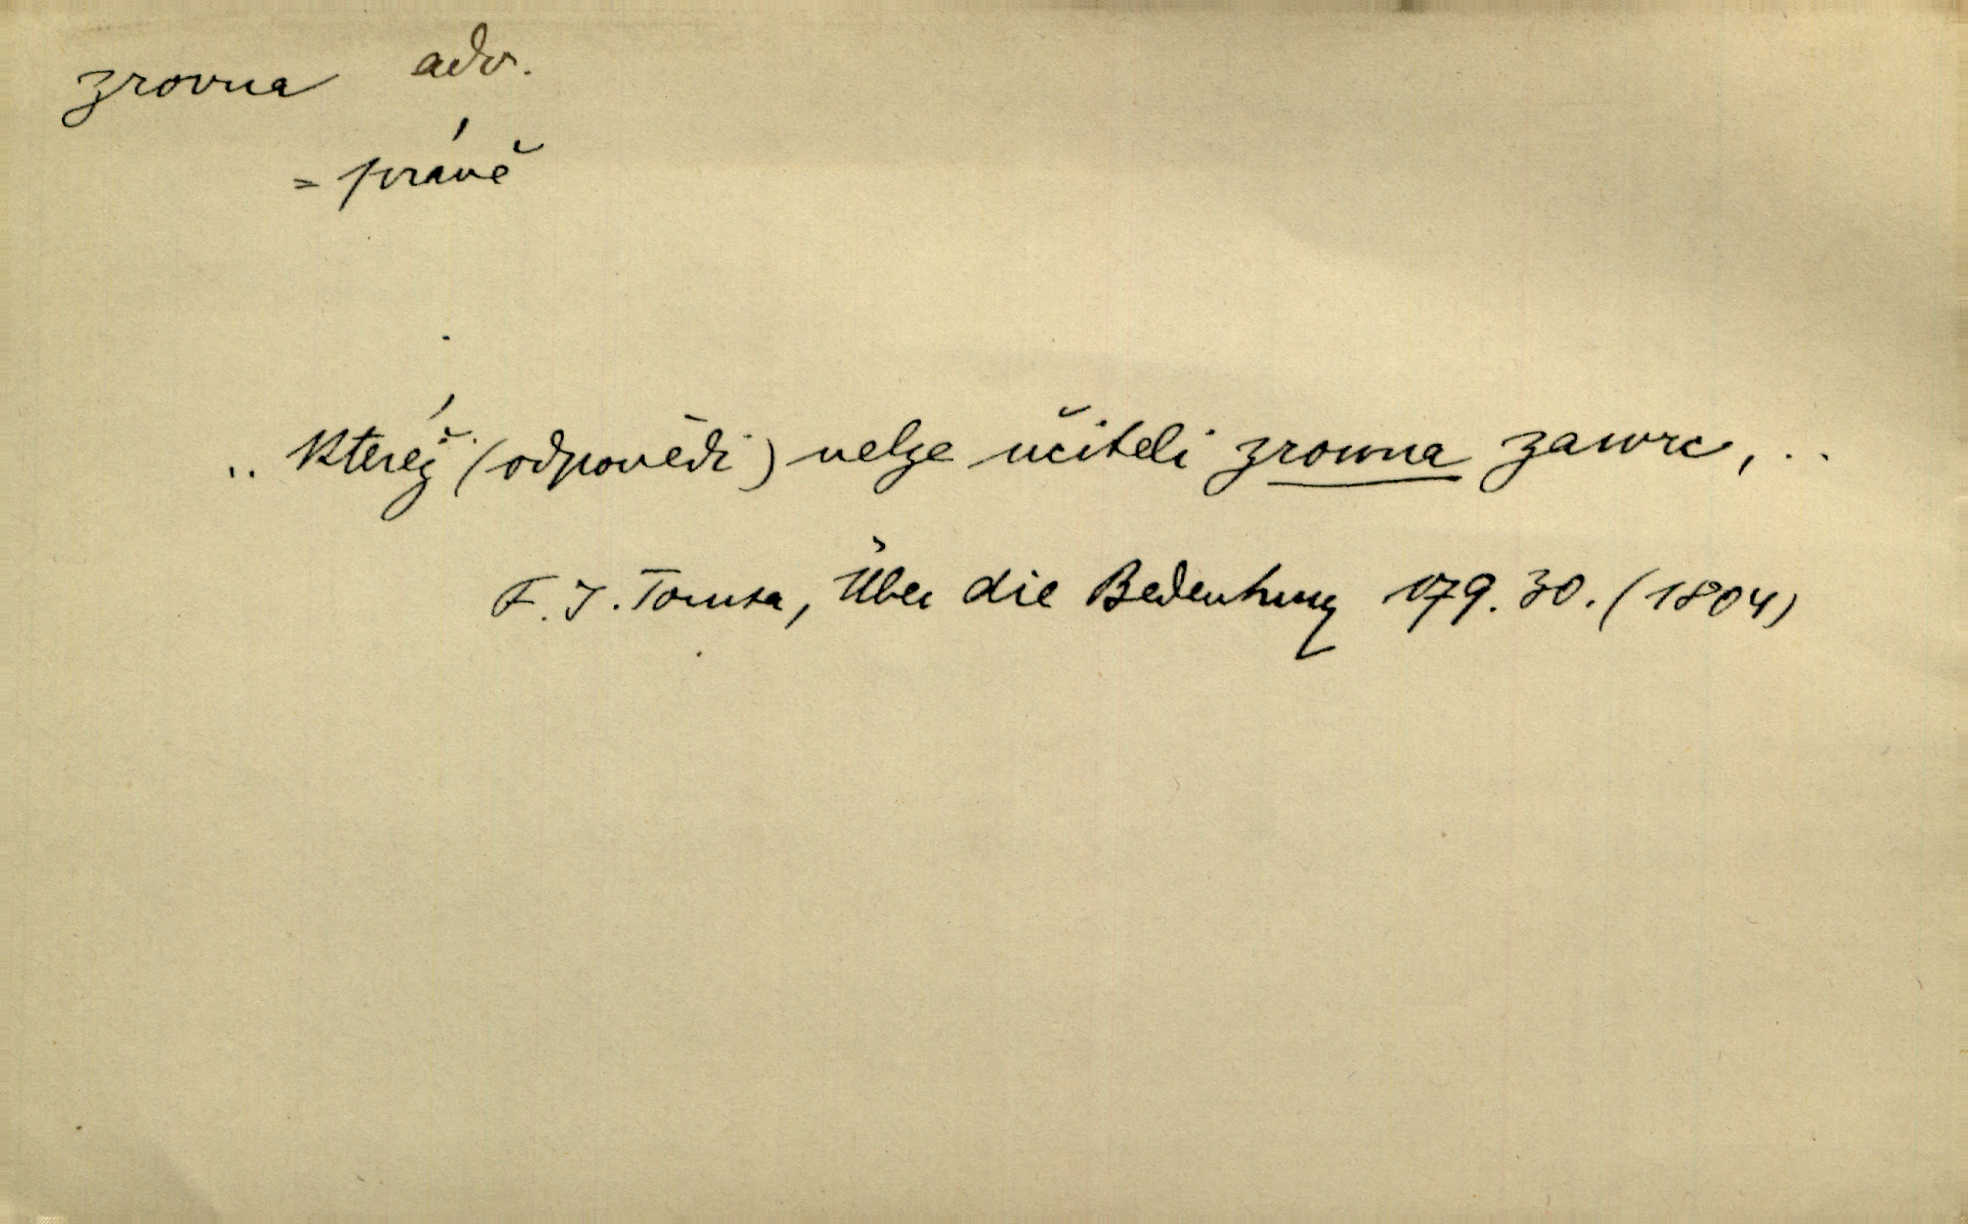 zrovna adv.
= právě
.. kteréž (odpovědi) nelze učiteli zrowna zawrc, ..
F. J. Tomsa, Über die Bedeutung 179. 30. (1804)